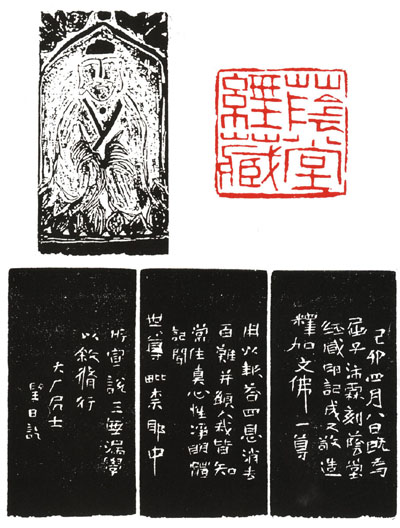 蔭堂
經藏
己卯四月八日既為
屈子沛霖刻蔭堂
經藏印記成又敬造
釋加文佛一尊
用以報答四恩消去
百難并願人我皆知
常住真心性淨明體
記聞
世尊毗柰耶中
所宣說三無漏學
以敘脩行
大厂居士
聖日記